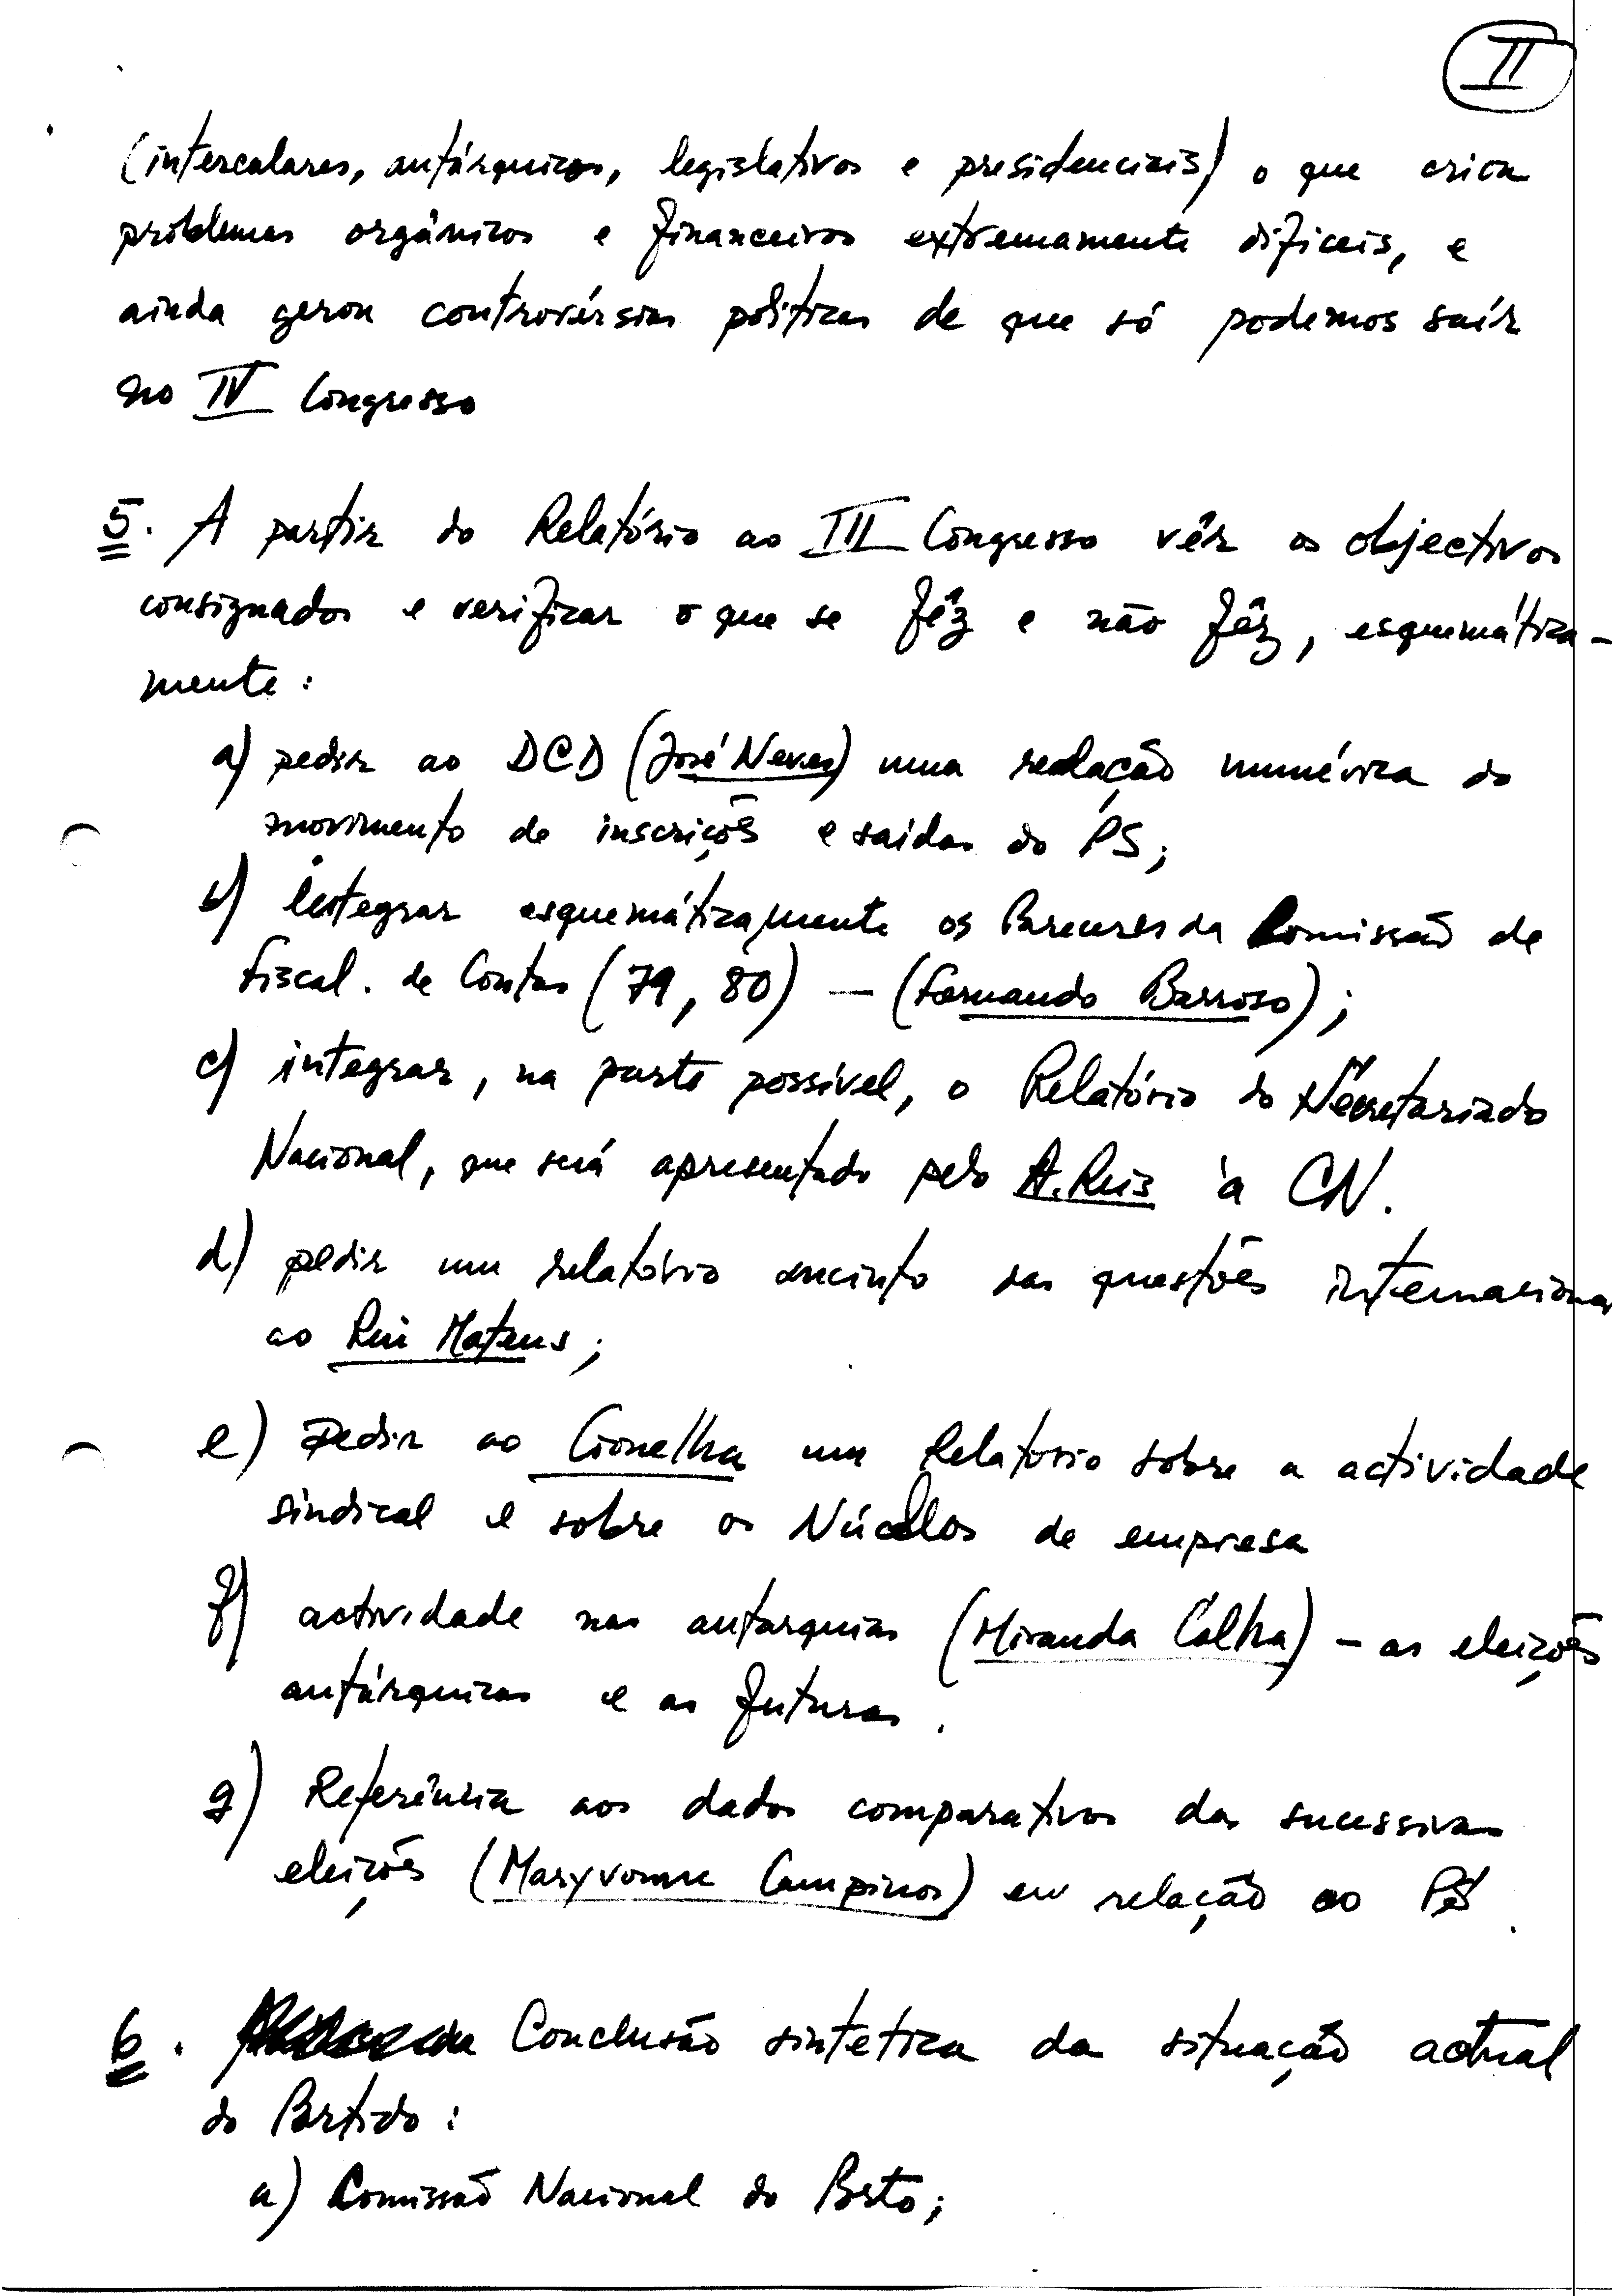 II
(intercalares, autárquicas, legislativas e presidenciais) o que criou
problemas orgânicos e financeiros extremamente dificeis, e
ainda gerou controvérsias politicas de que só podemos saír
no IV Congresso
5. A partir do Relatório ao III Congresso vêr os objectivos
consignados e verificar o que se fêz e não fêz, esquemática-
mente:
a) pedir ao DCD (José Neves) uma relação numérica do
movimento de inscrições e saídas do PS;
b) integrar esquemáticamente os Pareceres da Comissão de
Fiscal. de Contas (79, 80) — (Fernando Barroso);
c) integrar, na parte possível, o Relatório do Secretariado
Nacional, que será apresentado pelo A. Reis à CN.
d) pedir um relatório sucinto das questões internacionai
ao Rui Mateus;
e) Pedir ao Gonelha um Relatorio sobre a actividade
sindical e sobre os Núcelos de empresa
f) actividade nas autarquias (Miranda Calha) - as eleições
autárquicas e as futuras.
g) Referência aos dados comparativos das sucessivas
eleições (Maryvonne Campinos) em relação ao PS.
6. Conclusão sintetica da situação actual
do Partido:
a) Comissão Nacional do Porto;